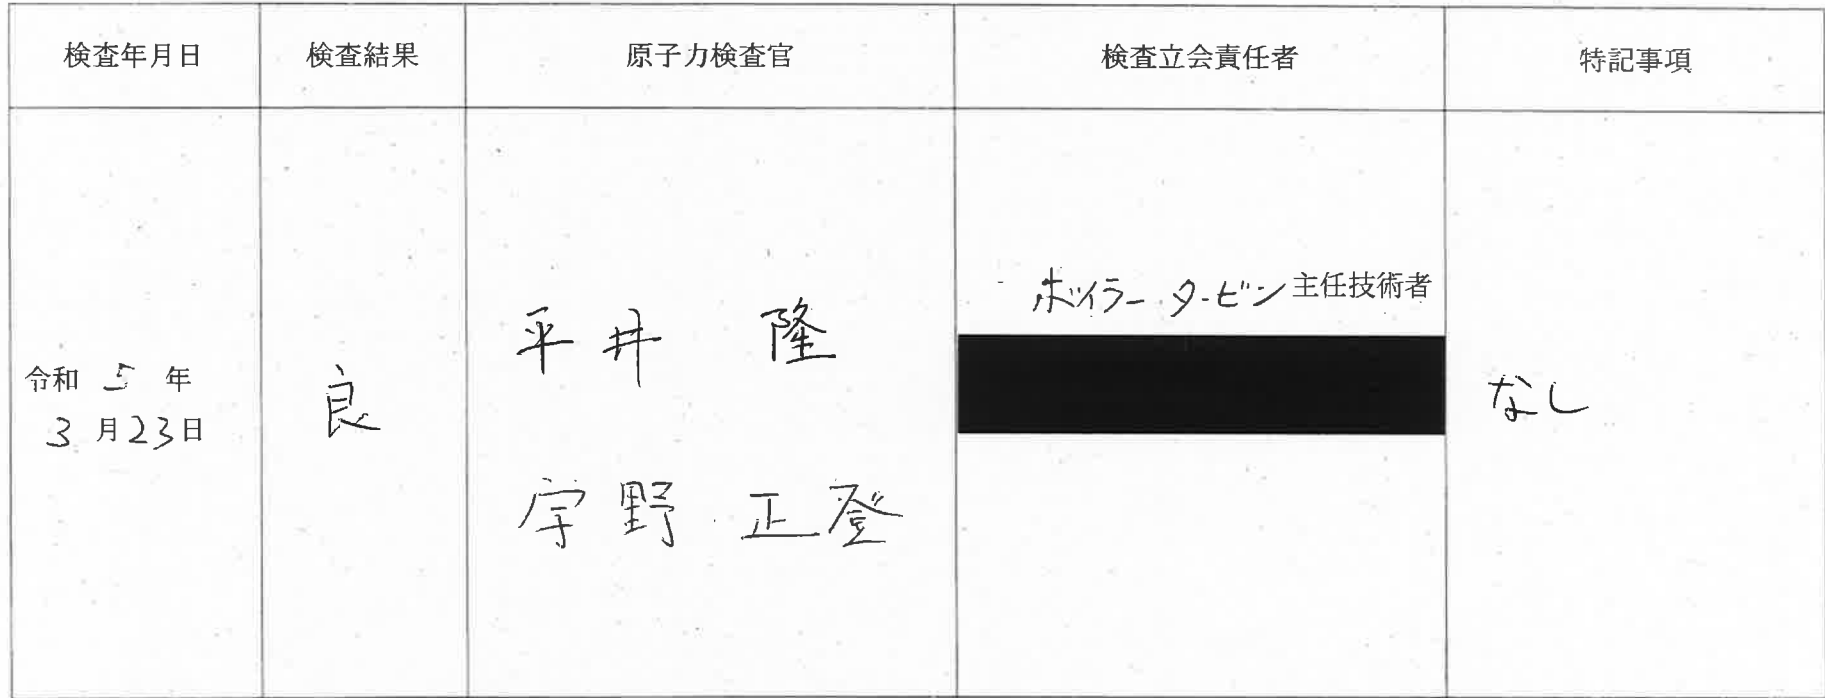 検査年月日
検査結果
原子力検査官
検査立会責任者
特記事項
令和 5 年
3 月 23 日
良
平井 隆
宇野 正登
ボイラー タービン 主任技術者
なし